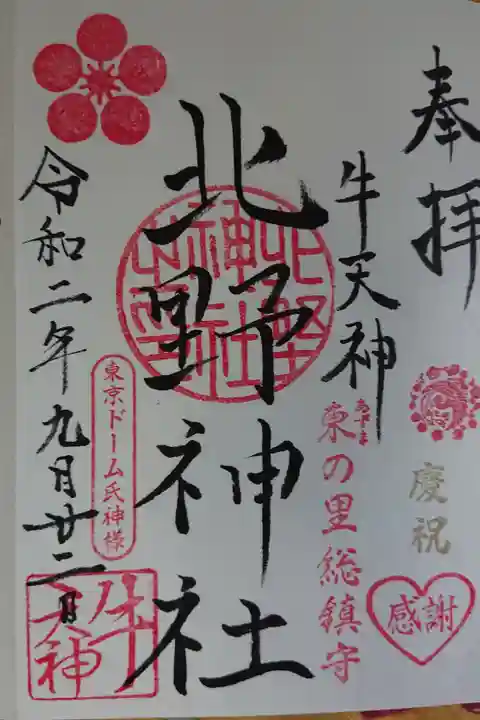 奉拝
慶祝
感謝
牛天神
あずま
東の里総鎮守
北野神社
東京ドーム氏神様
令和二年九月廿二日
牛天神